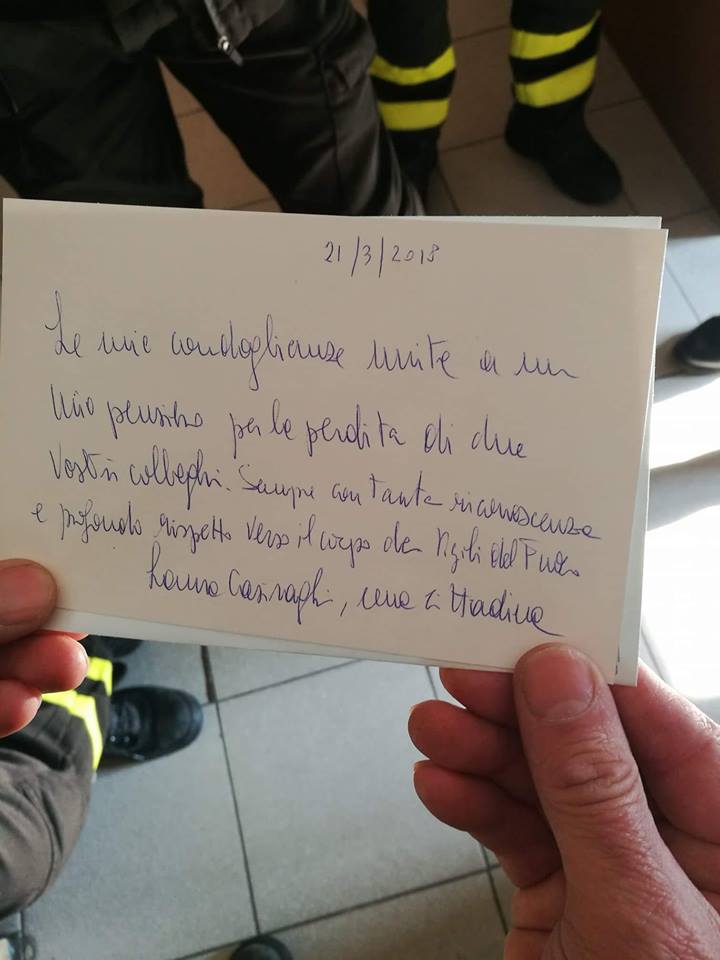 21/3/2018
Le mie condoglianze unite a un
mio pensiero per la perdita di due
Vostri colleghi. Sempre con tanta riconoscenza
e profondo rispetto verso il corpo dei Vigili del Fuoco
Laura Casiraghi, una cittadina